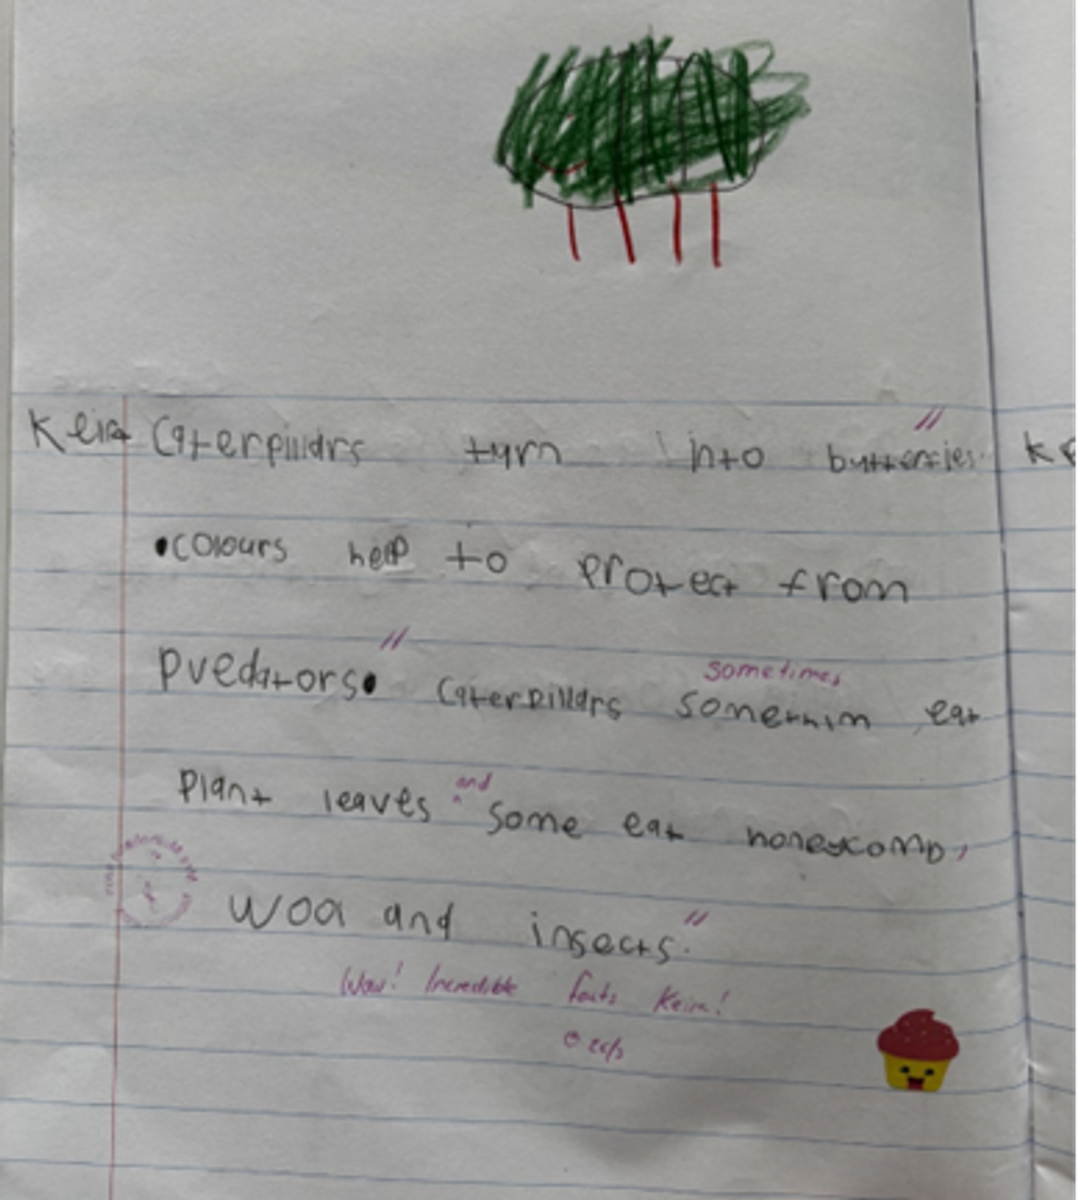 Keira Caterpillars turn into butterflies. KE
•colours help to protect from
predators• Caterpillars somethim eat
sometimes
Plant leaves some eat honeycomb,
and
woa and insects.
Wow! Incredible facts Keira!